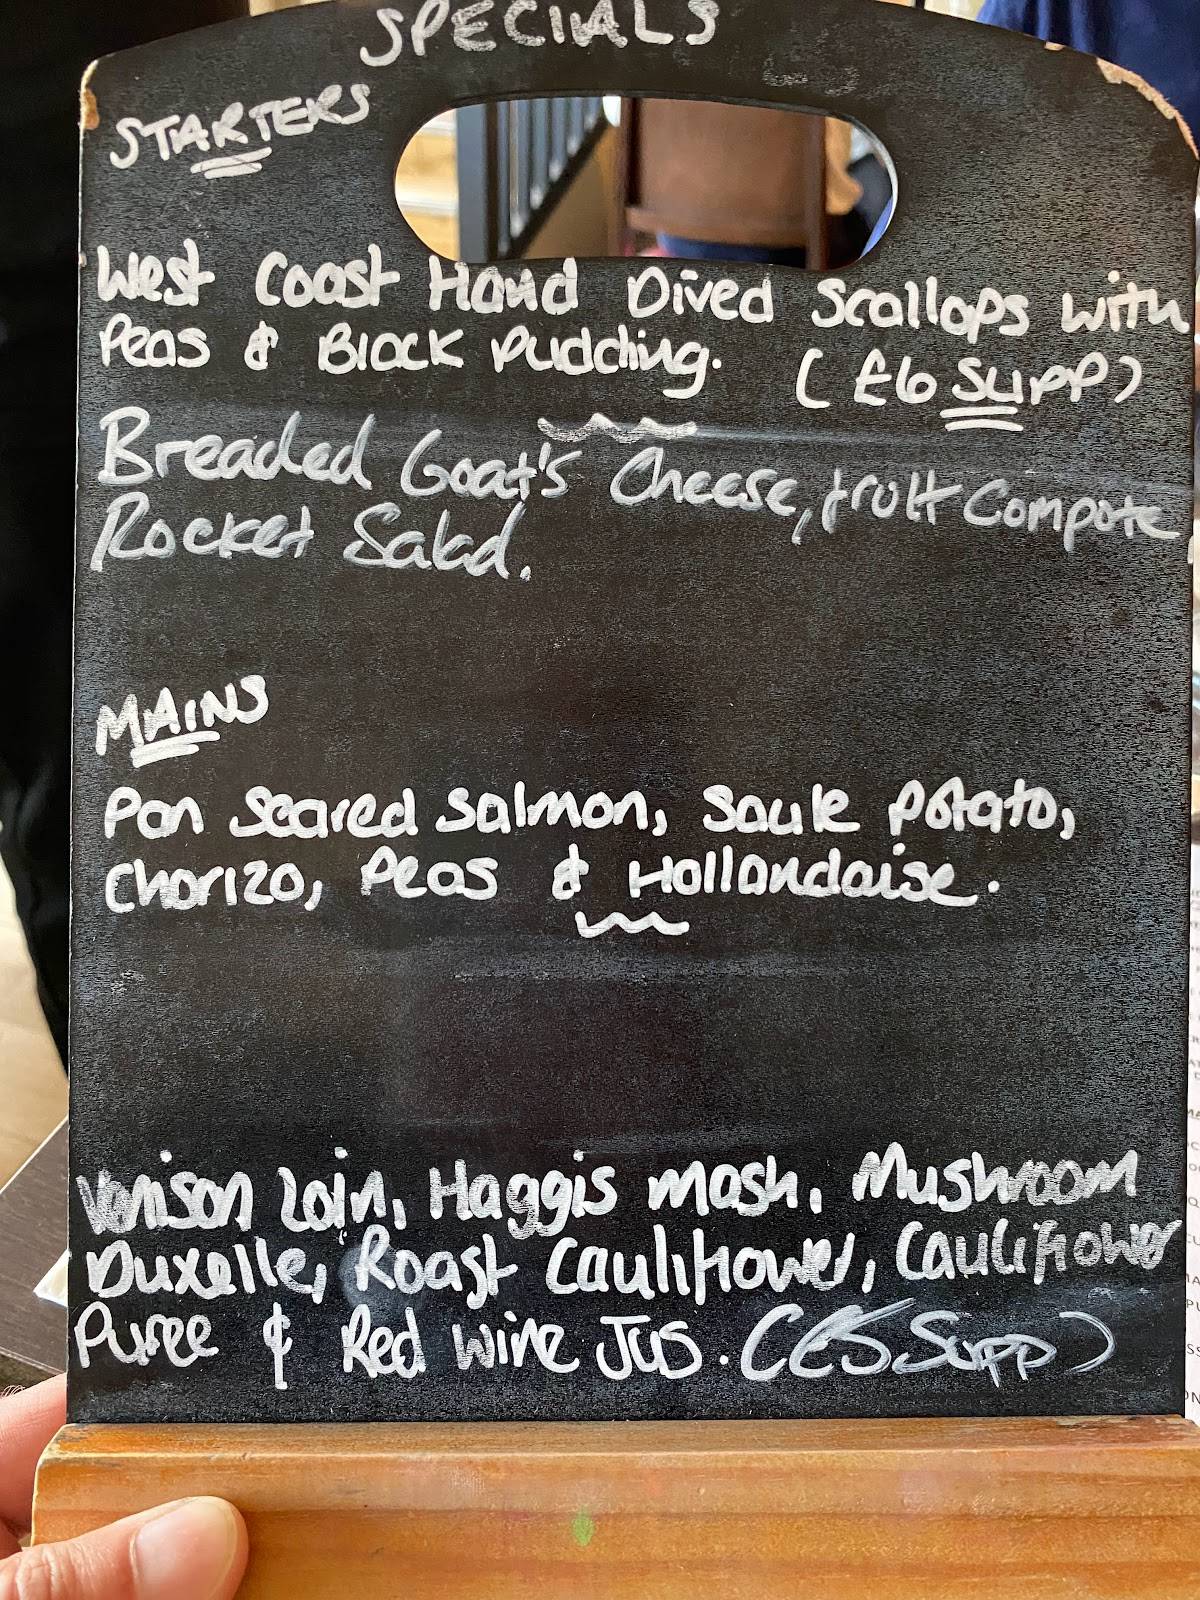 SPECIALS
STARTERS
West Coast Hand Dived Scallops with
Peas & Black Pudding. (£6 SUPP)
Breaded Goat's Cheese, fruit Compote
Rocket Salad.
MAINS
Pan Seared Salmon, Saute Potato,
Chorizo, Peas & Hollandaise.
Venison Loin, Haggis mash, Mushroom
Duxelle, Roast Cauliflower, Cauliflower
Puree & Red wine Jus. (£5 Supp)